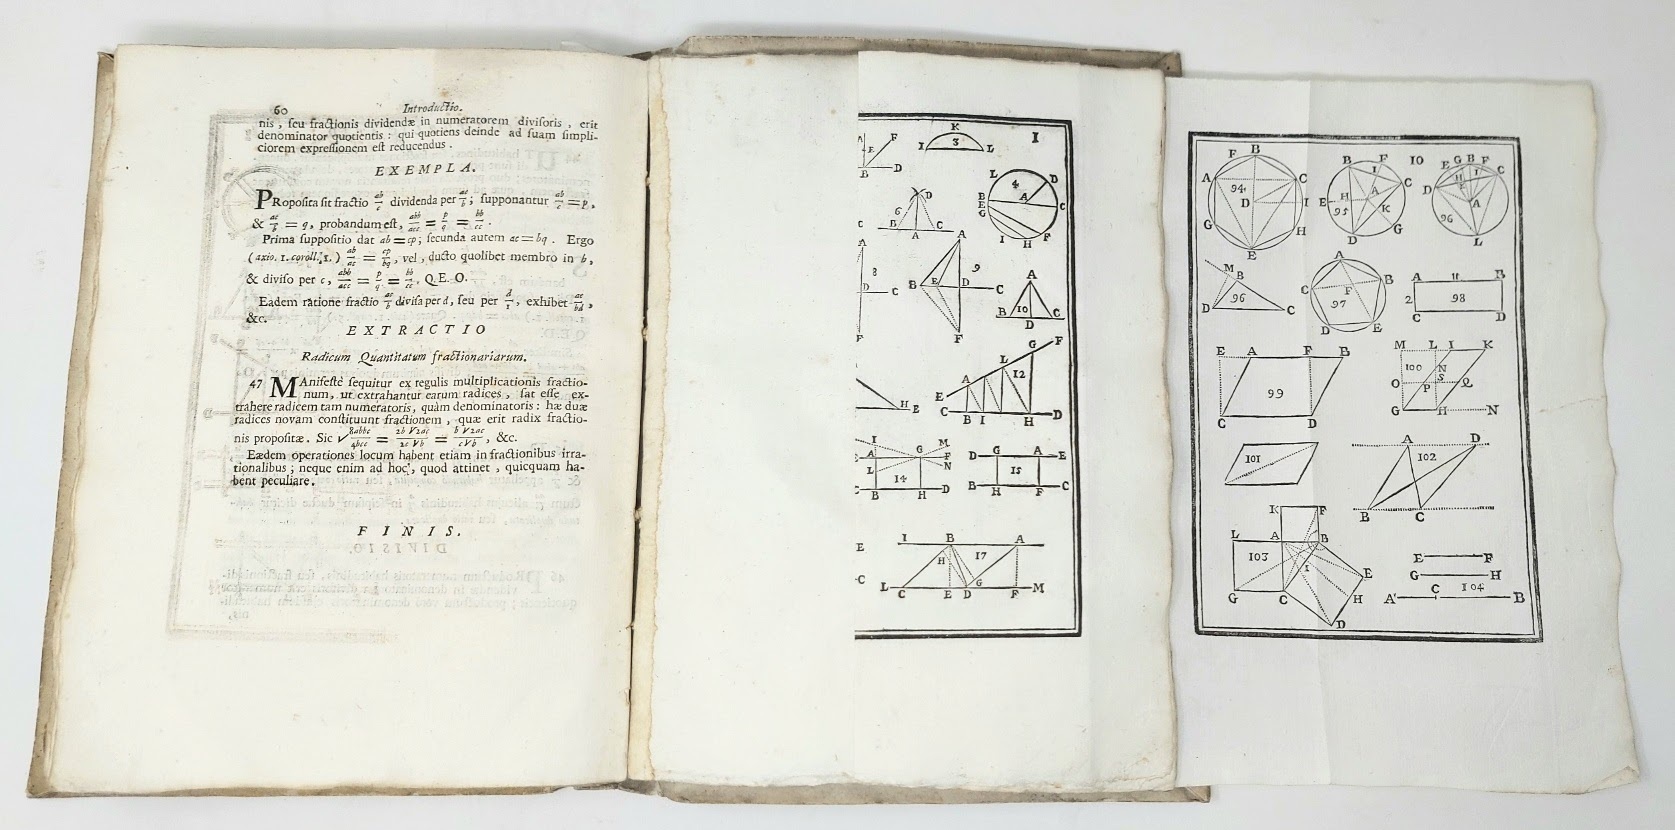 60 Introductio.
nis, ſeu fractionis dividendæ in numeratorem diviſoris, erit
denominator quotientis: qui quotiens deinde ad ſuam ſimpli-
ciorem expreſſionem eſt reducendus.
EXEMPLA.
PRopoſita ſit fractio ab/c dividenda per ac/b; ſupponantur ab/c = p,
& ac/b = q, probandum eſt, abb/acc = p/q = bb/cc.
Prima ſuppoſitio dat ab = cp; ſecunda autem ac = bq. Ergo
(axio. 1. coroll. 1.) ab/ac = cp/bq, vel, ducto quolibet membro in b,
& diviſo per c, abb/acc = p/q = bb/cc, Q.E.O.
Eadem ratione fractio ac/b diviſa per d, ſeu per d/1, exhibet ac/bd,
&c.
EXTRACTIO
Radicum Quantitatum fractionariarum.
47 MAnifeſtè ſequitur ex regulis multiplicationis fractio-
num, ut extrahantur earum radices, ſat eſſe ex-
trahere radicem tam numeratoris, quàm denominatoris: hæ duæ
radices novam conſtituunt fractionem, quæ erit radix fractio-
nis propoſitæ. Sic √8abbc/4bcc = 2b√2ac/2c√b = b√2ac/c√b, &c.
Eædem operationes locum habent etiam in fractionibus irra-
tionalibus; neque enim ad hoc, quod attinet, quicquam ha-
bent peculiare.
FINIS.
I
K
I 3 L
F
E
B D
L D
4
B A C
E
G
I H F
D
6
C B A C
A
8
D C
F
A
9
B E D C
F
A
10
B D C
H E
G F
L
A 12
E
C B I H D
I G M
A F
L N
14
B H D
D G A E
15
B H F C
E
C
I B A
H 17 G
L C E D F M
10
F B
A 94 C
D I
G H
E
B F
I
A C
E H
95 K
D G
E G B F
H I C
D E
A
96
L
M
B
96
D C
A
C B
F
97
D E
A 11 B
2 98
C D
E A F B
99
C D
M L I K
100 N
S
O P Q
G H N
101
A D
102
B C
K F
L A B
103
I E
G C H
D
E F
G H
C 104
A B